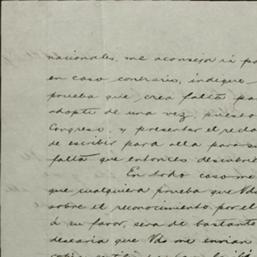 nacionales, me aconseja
en caso contrario, indique
prueba que crea falta pa
adopte de una vez, puesto
Congreso, y presentar el recla
de escribir para allá para su
falta que entonces descubri
En todo caso me
que cualquiera prueba que Vds
sobre el reconocimiento por el
á su favor, será de bastante
desearía que Vds me envían